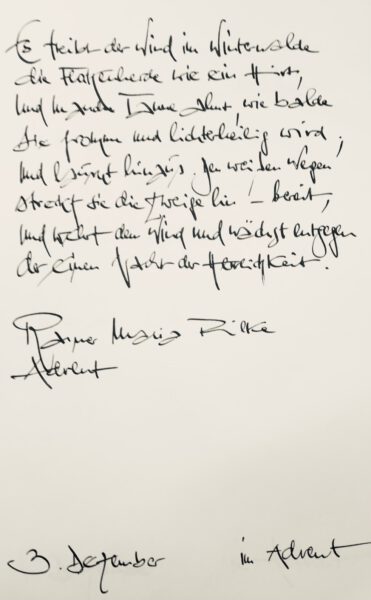 Es treibt der Wind im Winterwalde
die Flockenherde wie ein Hirt,
und manche Tanne ahnt, wie balde
sie fromm und lichterheilig wird,
und lauscht hinaus. Den weißen Wegen
streckt sie die Zweige hin – bereit,
und wehrt dem Wind und wächst entgegen
der einen Nacht der Herrlichkeit.
Rainer Maria Rilke
Advent
3. Dezember im Advent